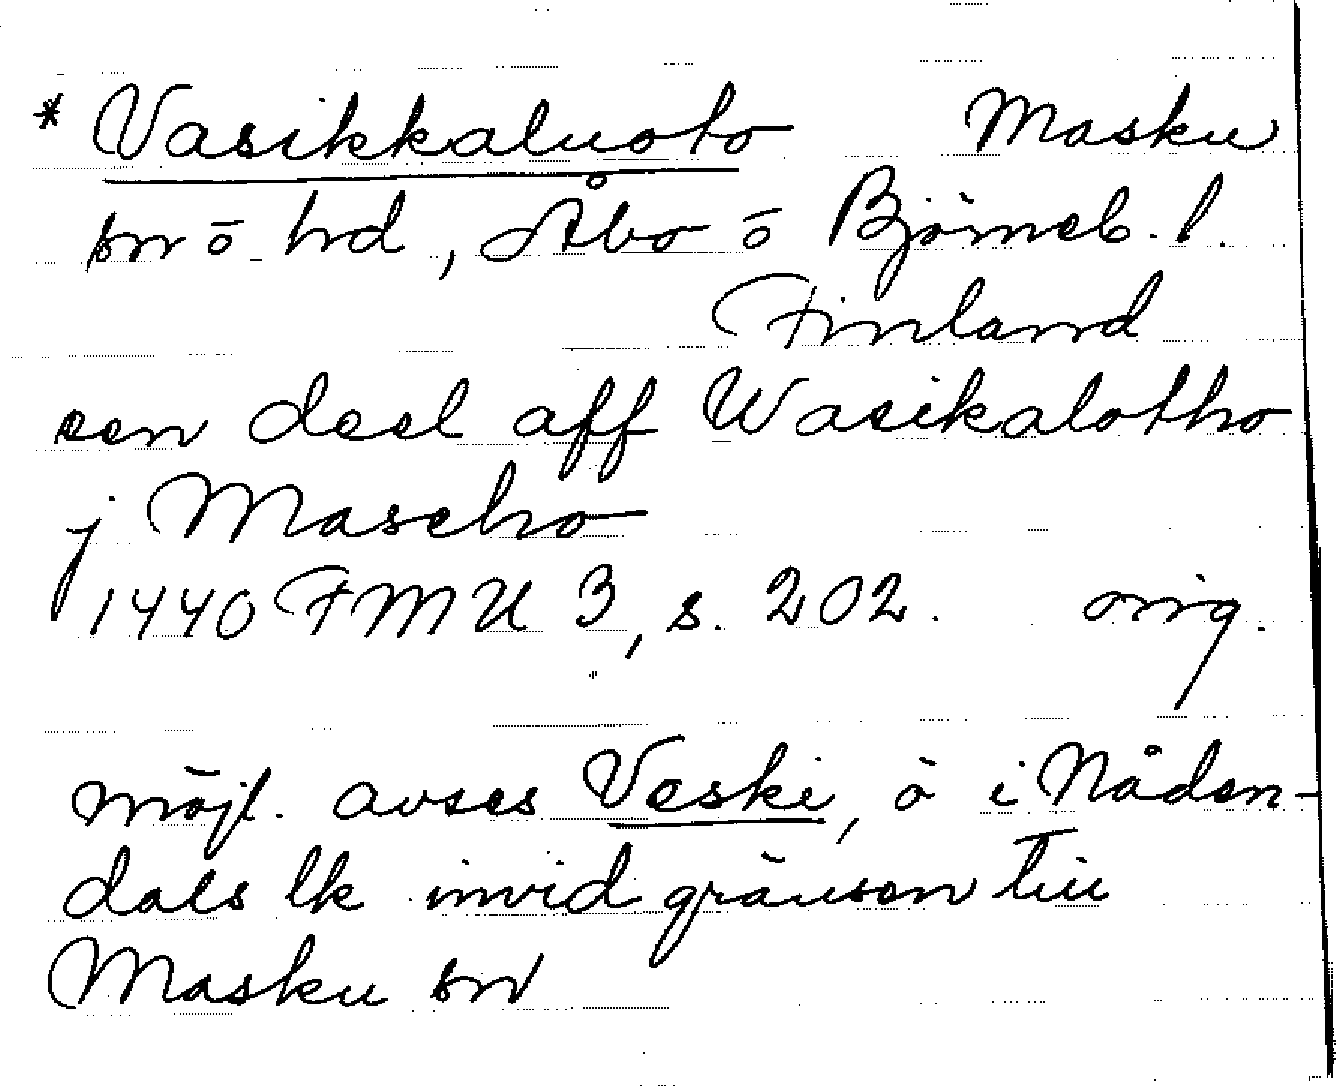 * Vasikkaluoto Masku
sn o. hd, Åbo o Björneb. l.
Finland
een deel aff Wasikalotho
j Mascho
1440 FMU 3, s. 202. orig.
möjl. avses Veski, ö i Nåden-
dals lk invid gränsen till
Masku sn